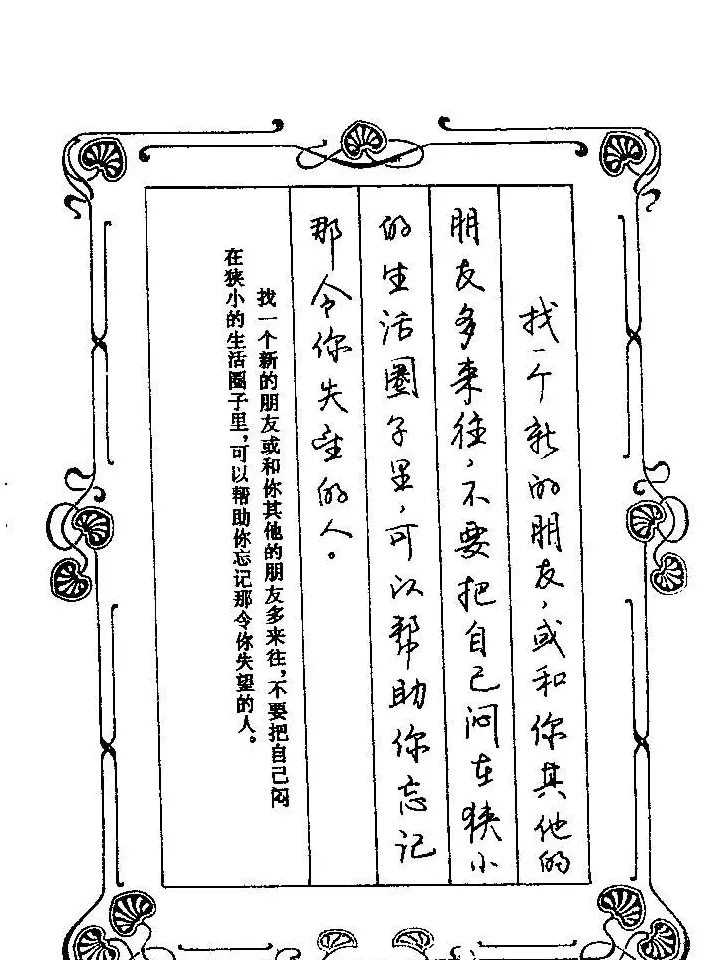 找一个新的朋友，或和你其他的
朋友多来往，不要把自己闷在狭小
的生活圈子里，可以帮助你忘记
那令你失望的人。
找一个新的朋友或和你其他的朋友多来往，不要把自己闷
在狭小的生活圈子里，可以帮助你忘记那令你失望的人。